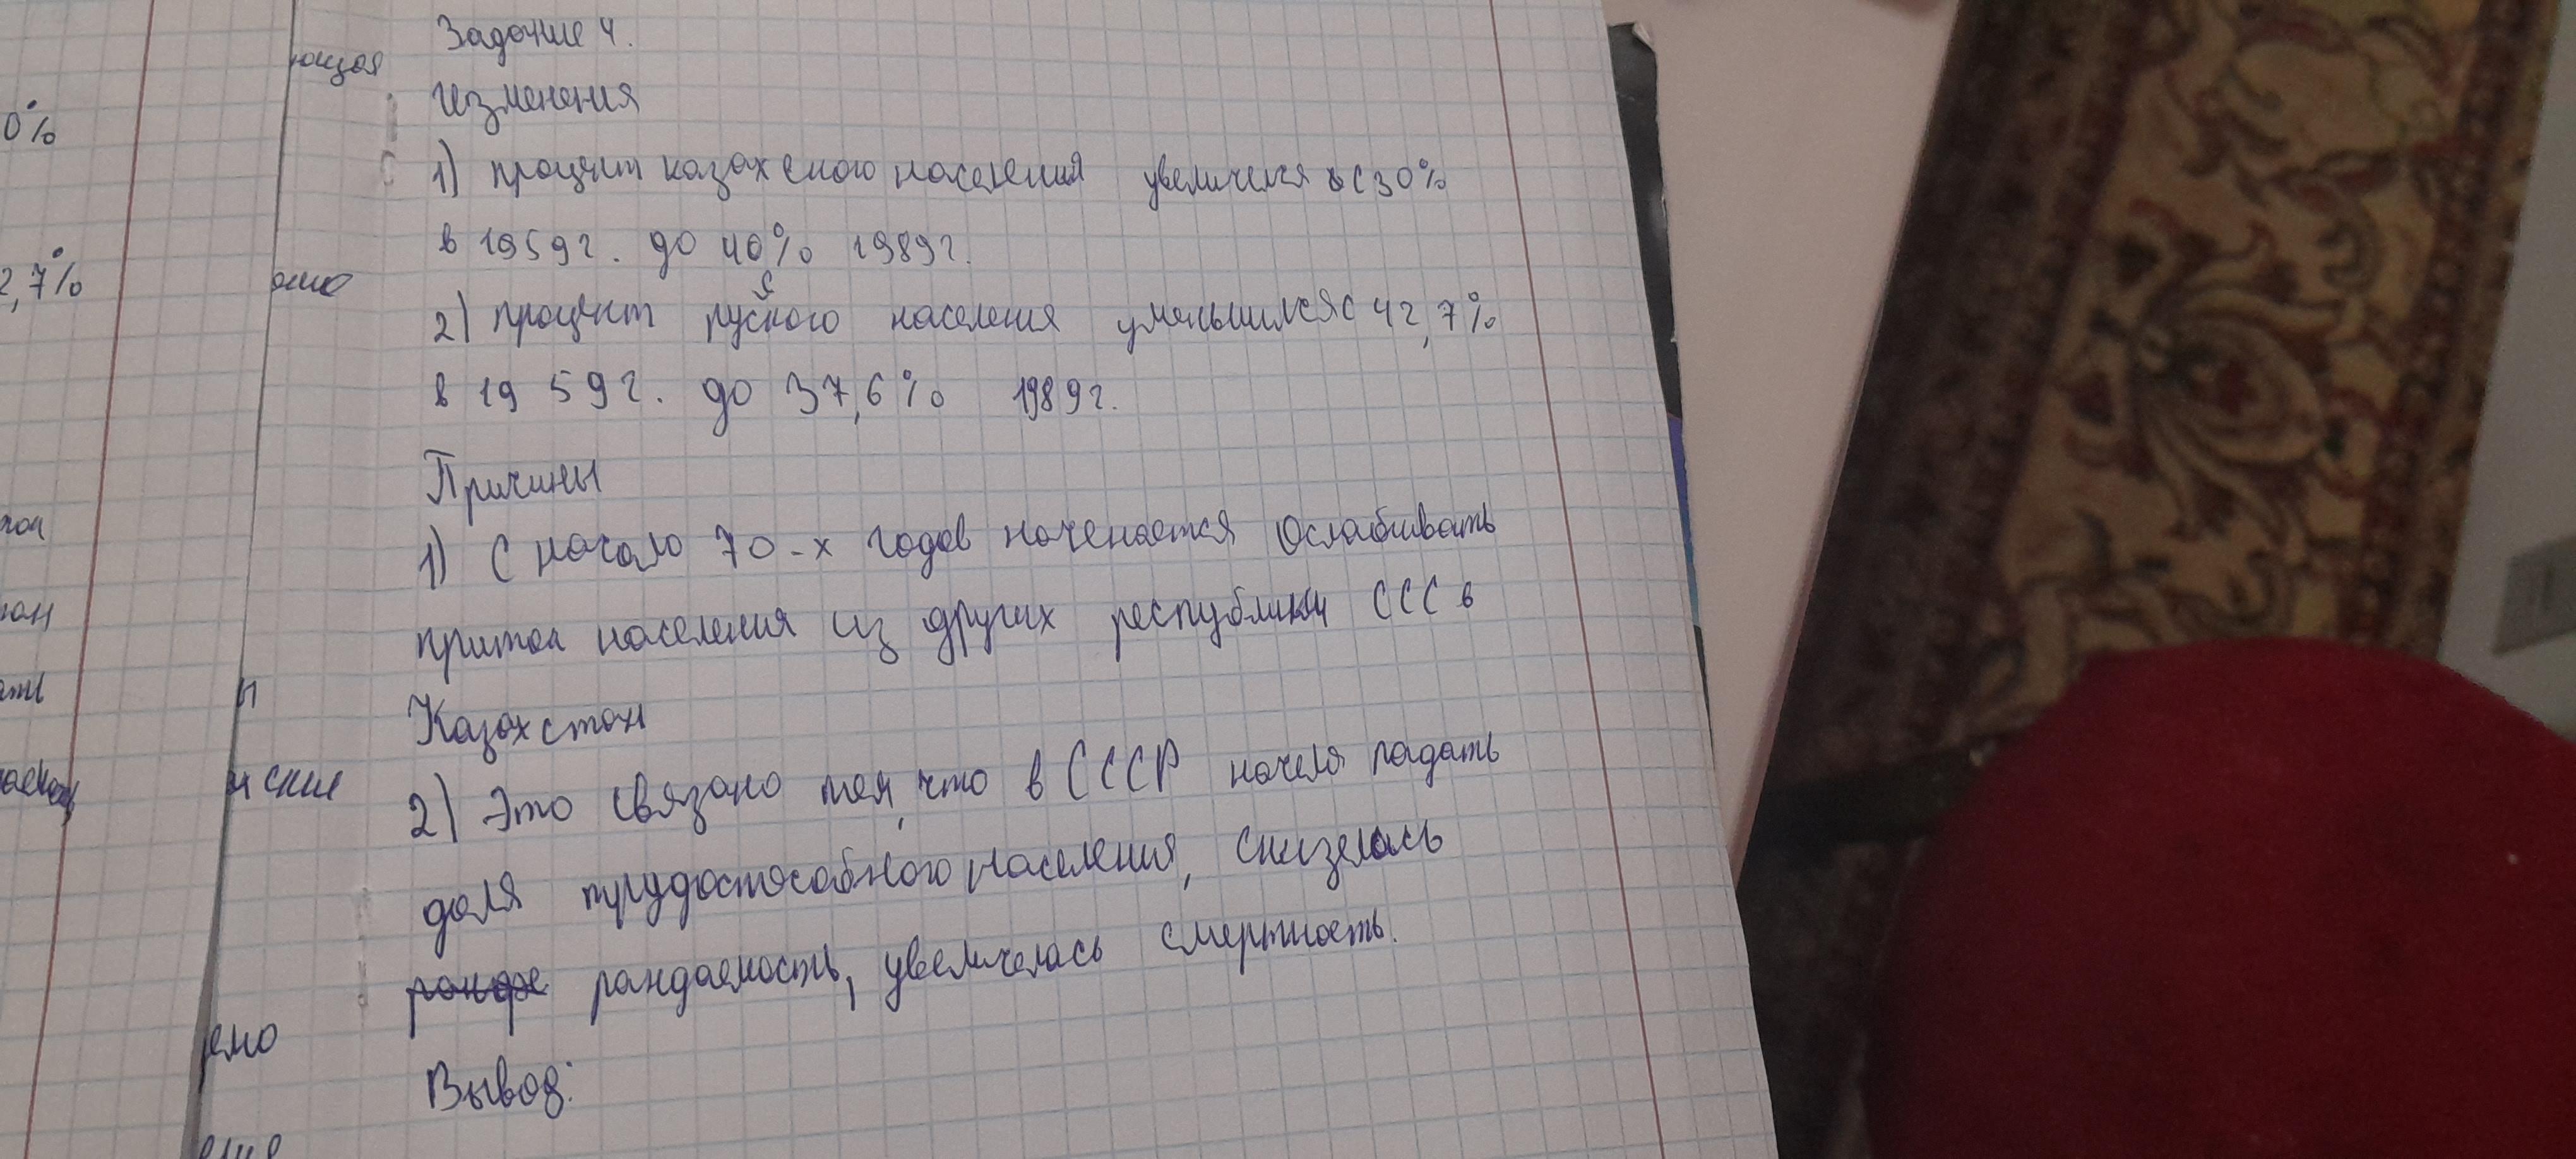 Задание 4.
Изменения
1) процент казахского населения увеличелся с 30%
в 1959г. до 40% 1989г.
2) процент русского населения уменьшился с 42,7%
в 1959г. до 37,6% 1989г.
Причины
1) С начало 70-х годов наченается Ослабивать
приток населения из других республики ССС в
Казахстан
2) Это связано тем, что в СССР начела падать
доля трудоспособного населения, снизелась
рандаемость, увеличелась смертность.
Вывод:
ющая
0%
2,7%